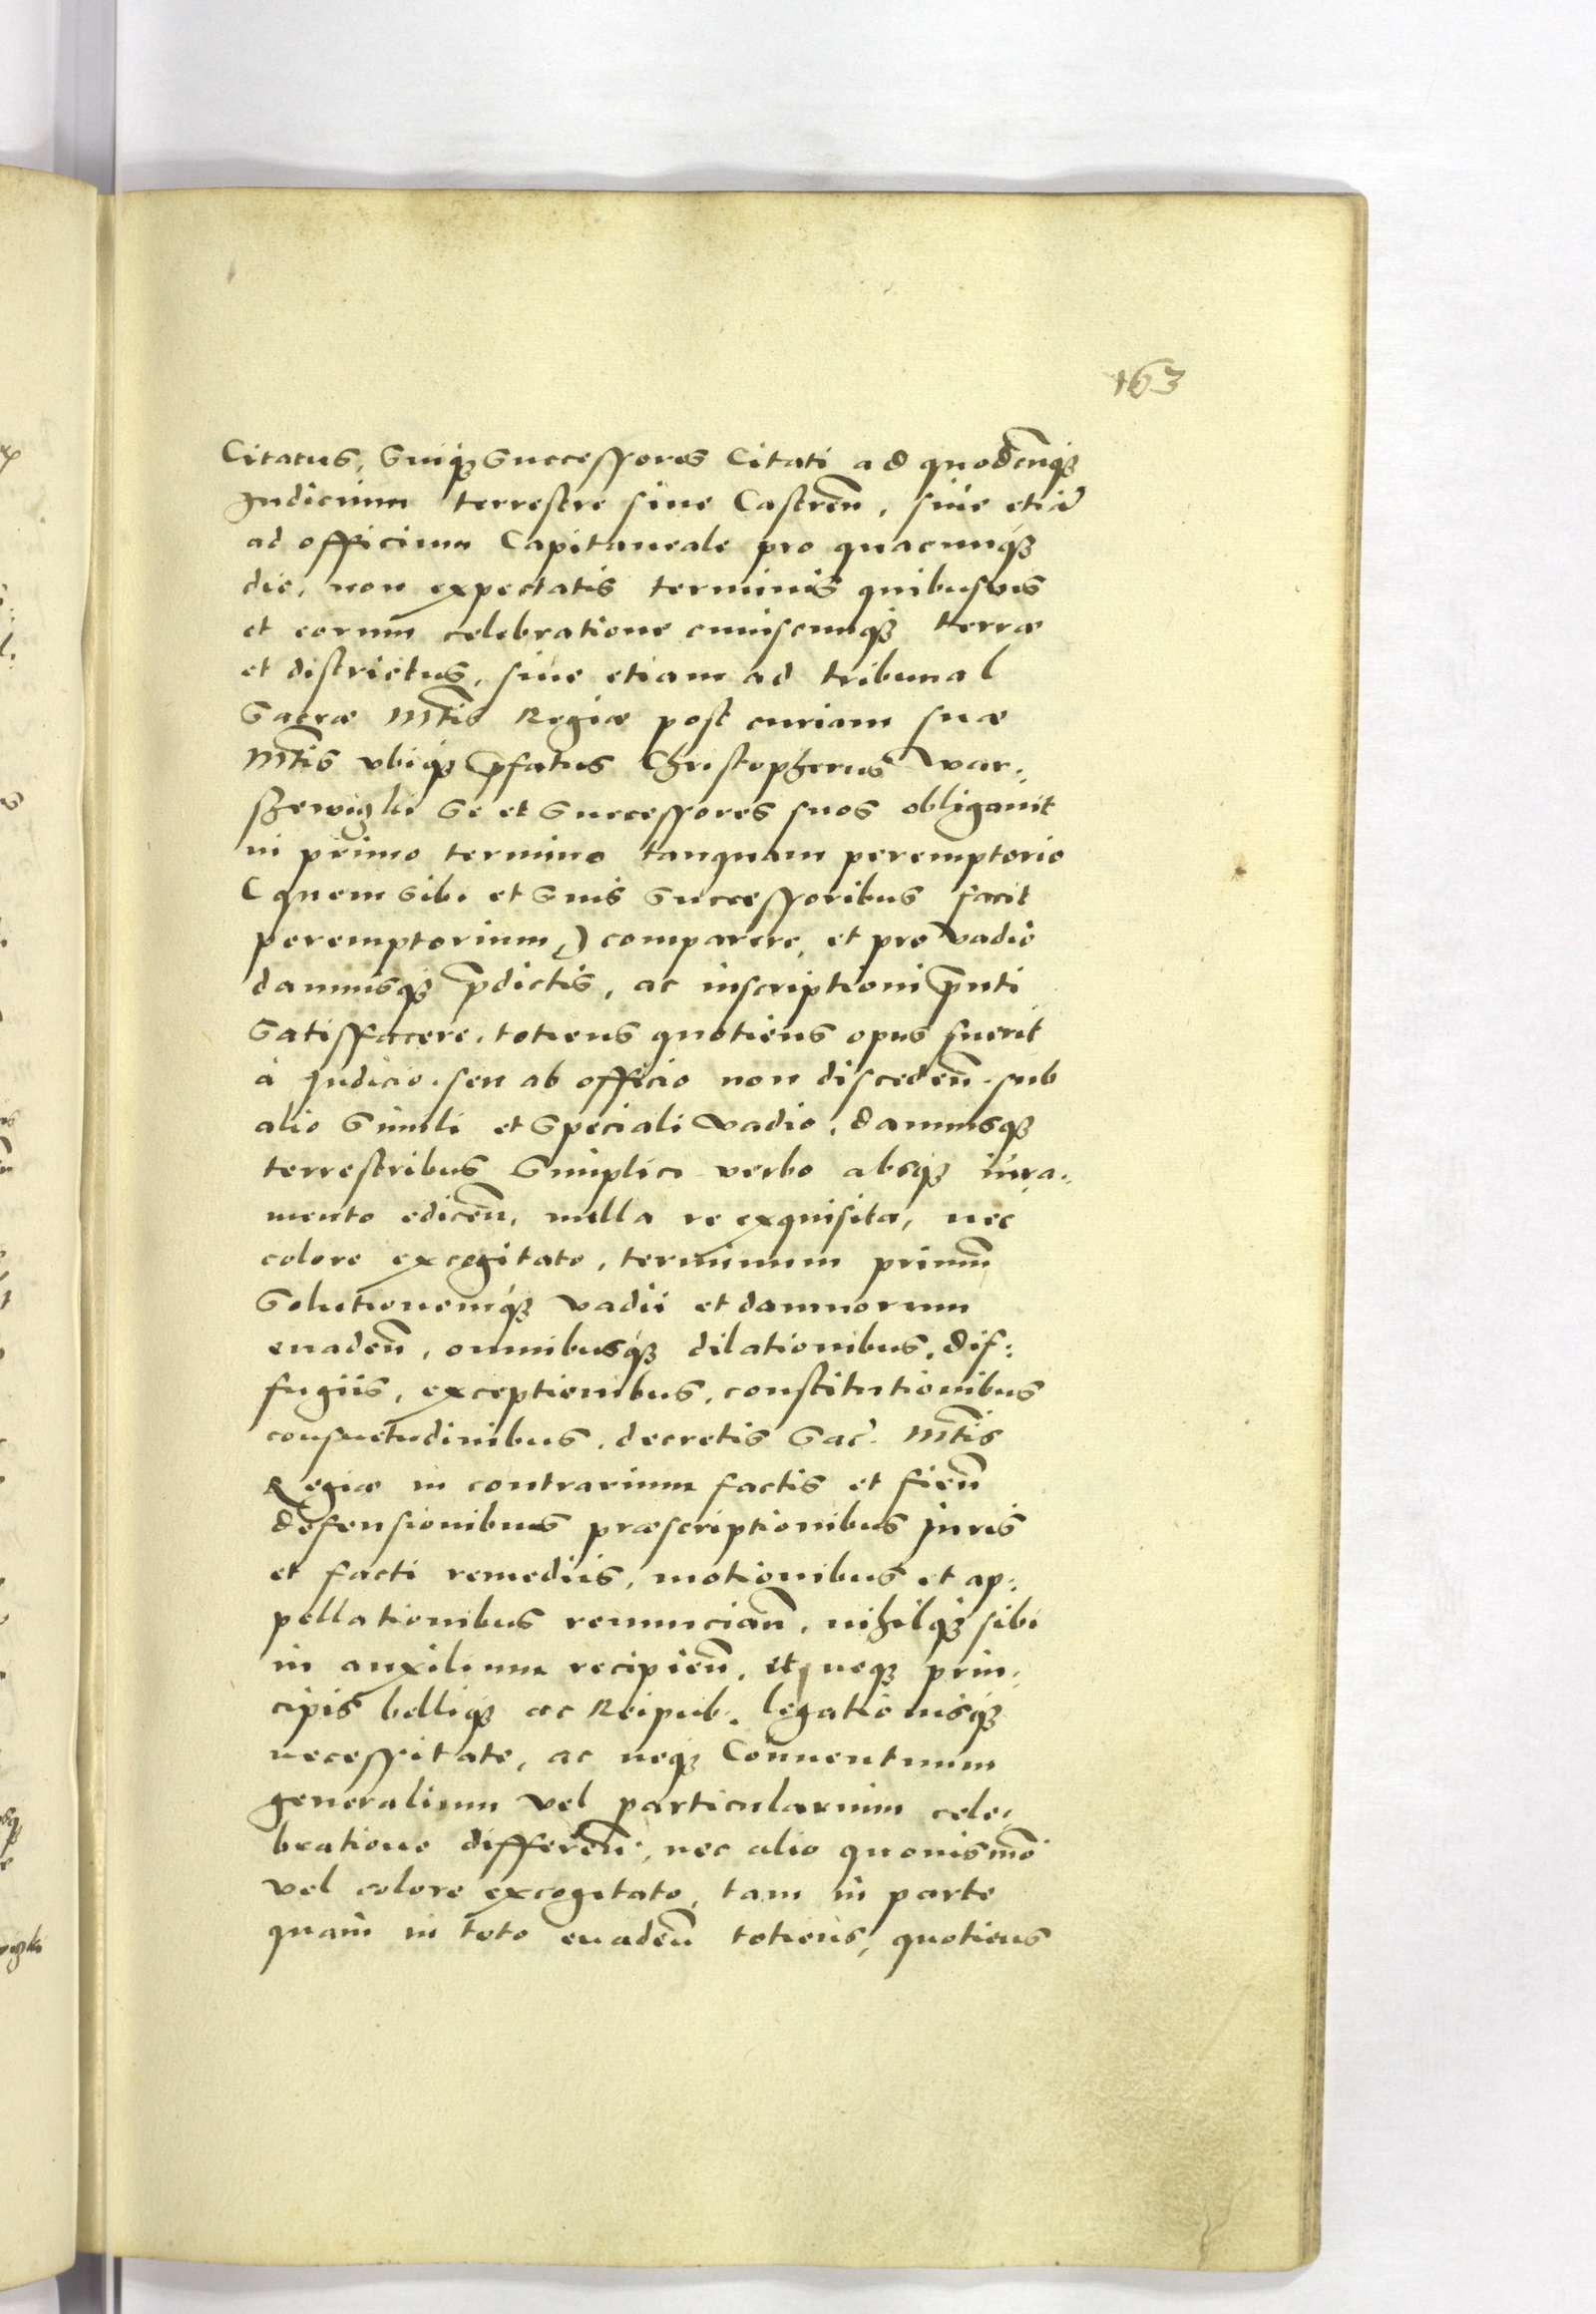 163
Citatus, Suiqȝ Successores Citati ad quodcūqȝ
Judicium terrestre siue Castreñ, siue etiā
ad officium Capitaneale pro quacunqȝ
die, non expectatis terminis quibusuis
et eorum celebratione cuiuscunqȝ terræ
et districtus, siue etiam ad tribunal
Sacræ Mt̃is Regiæ post curiam suæ
Mt̃is vbiqȝ p̃fatus Christopherus War-
szewiczki Se et Successores suos obligauit
in primo termino tanquam peremptorio
(quem Sibi et Suis Successoribus facit
peremptorium,) comparere, et pro vadio
damnisqȝ p̃dictis, ac inscriptioni p̃nti
Satisfacere, totiens quotiens opus fuerit
à Judicio, seu ab officio non discedeñ. sub
alio Simili et Speciali vadio, damnisqȝ
terrestribus Simplici verbo absqȝ iura-
mento ediceñ, nulla re exquisita, nec
colore excogitato, terminum primū
Solutionemqȝ vadii et damnorum
euadeñ, omnibusqȝ dilationibus, dif-
fugiis, exceptionibus, constitutionibus
consuetudinibus, decretis Sac. Mt̃is
Regiæ in contrarium factis et fieñ
defensionibus præscriptionibus Juris
et facti remediis, motionibus et ap-
pellationibus renunciañ, nihilqȝ sibi
in auxilium recipieñ, et neqȝ prin-
cipis belliqȝ ac Reipub. legationisqȝ
necessitate, ac neqȝ Conuentuum
generalium vel particularium cele-
bratione differeñ, nec alio quouismõ
vel colore excogitato, tam in parte
quam in toto euadeñ totiens, quotiens